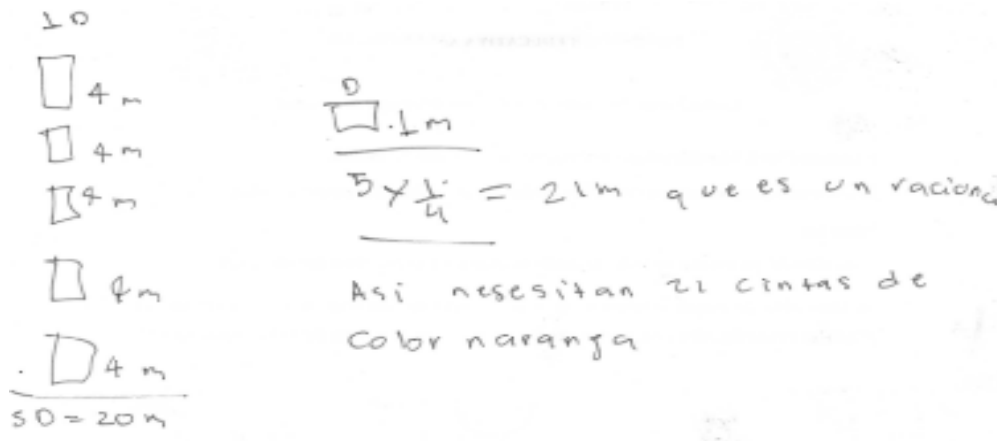 1 D
4 m
4 m
4 m
4 m
4 m
5 D = 20 m
D
.1 m
5 y 1/4 = 21 m que es un raciona
Asi nesesitan 21 cintas de
color naranga